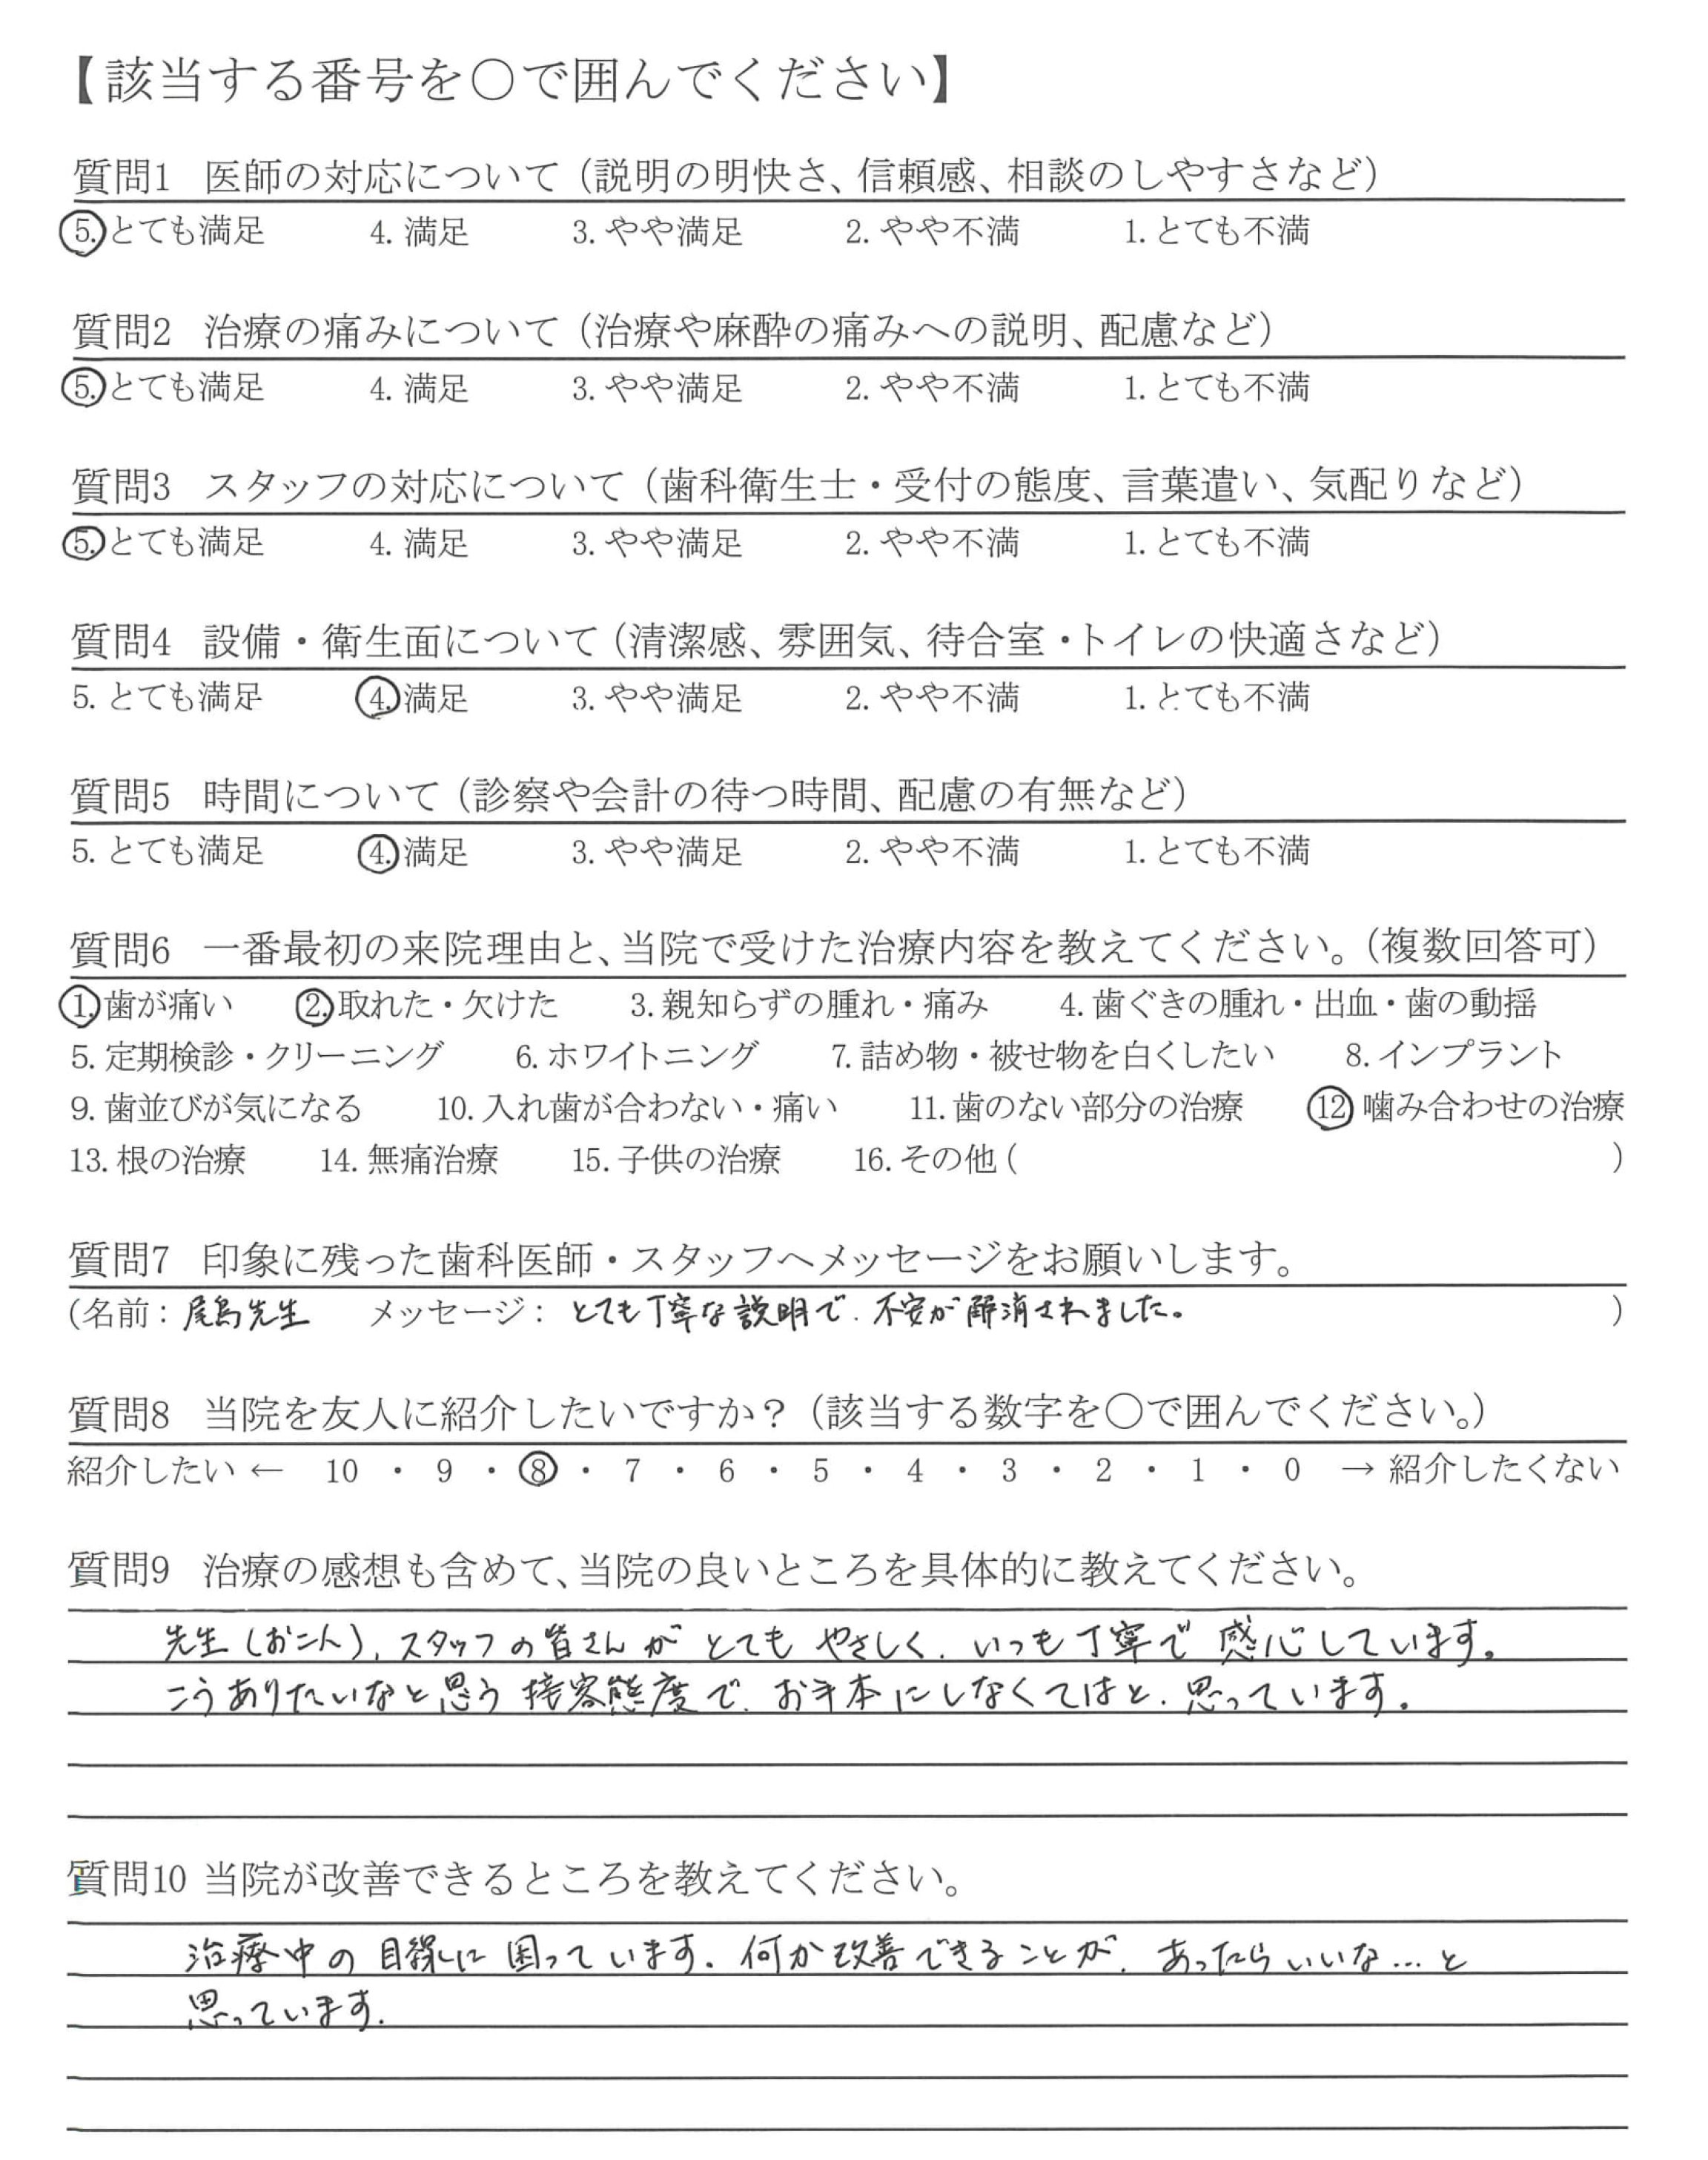 【該当する番号を〇で囲んでください】
質問1 医師の対応について（説明の明快さ、信頼感、相談のしやすさなど）
5. とても満足 4. 満足 3. やや満足 2. やや不満 1. とても不満
質問2 治療の痛みについて（治療や麻酔の痛みへの説明、配慮など）
5. とても満足 4. 満足 3. やや満足 2. やや不満 1. とても不満
質問3 スタッフの対応について（歯科衛生士・受付の態度、言葉遣い、気配りなど）
5. とても満足 4. 満足 3. やや満足 2. やや不満 1. とても不満
質問4 設備・衛生面について（清潔感、雰囲気、待合室・トイレの快適さなど）
5. とても満足 4. 満足 3. やや満足 2. やや不満 1. とても不満
質問5 時間について（診察や会計の待つ時間、配慮の有無など）
5. とても満足 4. 満足 3. やや満足 2. やや不満 1. とても不満
質問6 一番最初の来院理由と、当院で受けた治療内容を教えてください。（複数回答可）
1. 歯が痛い 2. 取れた・欠けた 3. 親知らずの腫れ・痛み 4. 歯ぐきの腫れ・出血・歯の動揺
5. 定期検診・クリーニング 6. ホワイトニング 7. 詰め物・被せ物を白くしたい 8. インプラント
9. 歯並びが気になる 10. 入れ歯が合わない・痛い 11. 歯のない部分の治療 12 噛み合わせの治療
13. 根の治療 14. 無痛治療 15. 子供の治療 16. その他 ( )
質問7 印象に残った歯科医師・スタッフへメッセージをお願いします。
(名前：尾島先生 メッセージ：とても丁寧な説明で、不安が解消されました。)
質問8 当院を友人に紹介したいですか？（該当する数字を〇で囲んでください。）
紹介したい ← 10 ・ 9 ・ 8 ・ 7 ・ 6 ・ 5 ・ 4 ・ 3 ・ 2 ・ 1 ・ 0 → 紹介したくない
質問9 治療の感想も含めて、当院の良いところを具体的に教えてください。
先生、スタッフの皆さんがとてもやさしく、いつも丁寧で感心しています。
こうありたいなと思う接客態度で、お手本にしなくてはと、思っています。
質問10 当院が改善できるところを教えてください。
治療中の目隠しに困っています。何か改善できることが、あったらいいな…と
思っています。